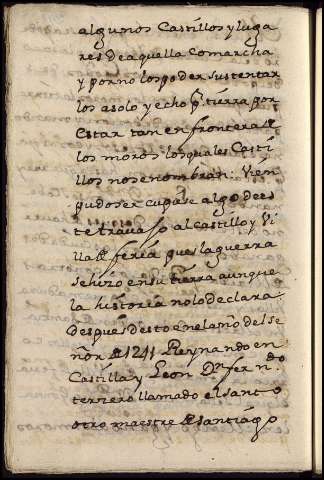 algunos Castillos y luga
res de aquella Comarcha
y por no los poder sustentar
los asolo y echo por tierra por
estar tan en frontera de
los moros los quales Casti
llos no se nombran: Vien
pudo ser cupiese algo de es
te travajo al castillo y Vi
lla de feria pues la guerra
se hizo en su tierra aunque
la historia no lo declara
Despues desto en el año del se
ñor de 1241 Reynando en
Castilla y Leon Dn ferndo
terzero llamado el santo
otro maestre de santiago